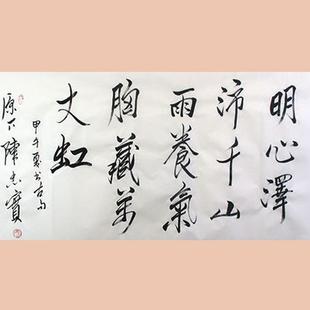 明心澤
沛千山
雨養氣
胸藏萬
丈虹
甲午夏书
陳志寶